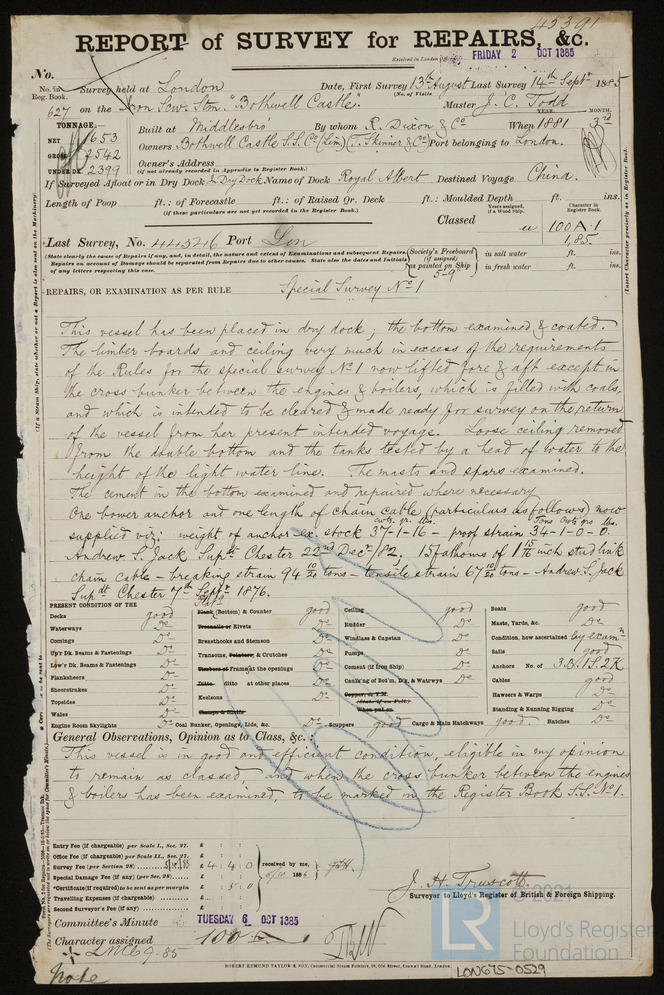 45391
REPORT of SURVEY for REPAIRS, &c.
Received in London FRIDAY 2 OCT 1885
No.
No. in Reg. Book. Survey held at London Date, First Survey 13th August Last Survey 14th Septr 1885
(No. of Visits
627 on the Iron Scw. Stm. "Bothwell Castle" Master J. C. Todd
TONNAGE: YEAR. MONTH.
NET 1653 Built at Middlesbro' By whom R. Dixon & Co When 1881 3rd
GROSS 2542 Owners Bothwell Castle S.S. Co (Lim) (T. Skinner & Co) Port belonging to London.
UNDER DK. 2399 Owner's Address
(if not already recorded in Appendix to Register Book.)
If Surveyed Afloat or in Dry Dock & Dry Dock Name of Dock Royal Albert Destined Voyage China.
Length of Poop ft.: of Forecastle ft.: of Raised Qr. Deck ft.: Moulded Depth ft. ins.
(if these particulars are not yet recorded in the Register Book.) Years assigned, if a Wood Ship. Character in Register Book.
Classed 100 A.1
1,85
Last Survey, No. 44526 Port Lon
(State clearly the cause of Repairs if any, and, in detail, the nature and extent of Examinations and subsequent Repairs. Repairs on account of Damage should be separated from Repairs due to other causes. State also the dates and Initials of any letters respecting this case.
Society's Freeboard (if assigned) as painted on Ship in salt water ft. ins.
5-9 in fresh water ft. ins.
REPAIRS, OR EXAMINATION AS PER RULE Special Survey No 1
This vessel has been placed in dry dock; the bottom examined & coated.
The limber boards and ceiling very much in excess of the requirements
of the Rules for the special survey No 1 now lifted fore & aft except in
the cross bunker between the engines & boilers, which is filled with coals,
and which is intended to be cleared & made ready for survey on the return
of the vessel from her present intended voyage. Loose ceiling removed
from the double bottom and the tanks tested by a head of water to the
height of the light water line. The masts and spars examined.
The cement in the bottom examined and repaired where necessary
One bower anchor and one length of chain cable (particulars as follows) now
supplied viz: weight of anchor ex. stock 37-1-16 - proof strain 34-1-0-0.
Andrew S. Jack Supt Chester 22nd Decr /82. 15 fathoms of 1 15/16 inch stud link
chain cable - breaking strain 94 10/20 tons - tensile strain 67 10/20 tons - Andrew S. Jack
Supdt Chester 7th Septr 1876.
PRESENT CONDITION OF THE
Decks good
Waterways Do
Comings Do
Up'r Dk. Beams & Fastenings Do
Low'r Dk. Beams & Fastenings Do
Planksheers Do
Sheerstrakes Do
Topsides Do
Wales Do
Engine Room Skylights Do
Plank (Bottom) & Counter good
Treenails or Rivets Do
Breasthooks and Stemson Do
Transoms, Pointers, & Crutches Do
Timbers or Frames at the openings Do
Ditto ditto at other places Do
Keelsons Do
Clamps & Shelfs
Coal Bunker, Openings, Lids, &c. Do
Ceiling good
Rudder Do
Windlass & Capstan Do
Pumps Do
Cement (if Iron Ship) Do
Caulk'ng of Bot'm, D'k, & Watrways Do
Copper, or Y.M.
(State if on Felt.)
When put on
Scuppers good Cargo & Main Hatchways good. Hatches Do
Boats good
Masts, Yards, &c. Do
Condition, how ascertained by examn
Sails good
Anchors No. of 3.B. 1S. 2K
Cables good
Hawsers & Warps Do
Standing & Running Rigging Do
General Observations, Opinion as to Class, &c.:
This vessel is in good and efficient condition, eligible in my opinion
to remain as classed, and when the cross bunker between the engines
& boilers has been examined, to be marked in the Register Book S.S. No 1.
Entry Fee (if chargeable) per Scale I., Sec. 27. £ : :
Office Fee (if chargeable) per Scale II., Sec. 27. £ : :
Survey Fee (per Section 28) £ 4 : 4 : 0 received by me,
Special Damage Fee (if any) (per Sec. 28) £ : :
*Certificate (if required) to be sent as per margin £ : 5 : 0
Travelling Expenses (if chargeable) £ : :
Second Surveyor's Fee (if any) £ : :
J. H. Truscott.
Surveyor to Lloyd's Register of British & Foreign Shipping.
Committee's Minute TUESDAY 6 OCT 1885
Character assigned 100 A
LMC 9.85
Note
ROBERT EDMUND TAYLOR & SON, Commercial Steam Printers, 19, Old Street, Goswell Road, London.
© 2021
LR Lloyd's Register
Foundation
LON675-0529